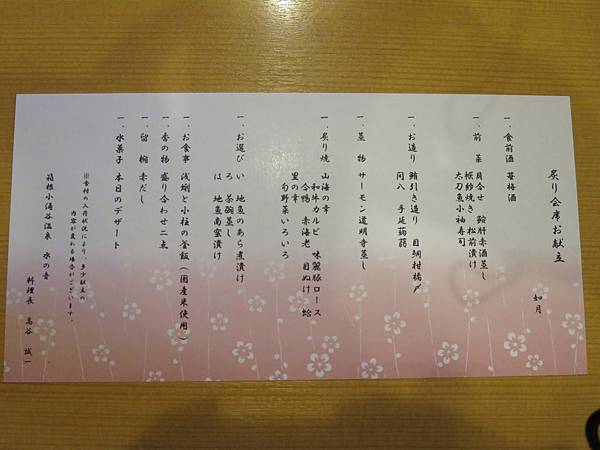 炙り会席お献立
如月
一、食前酒 苺梅酒
一、前 菜 貝合せ 鮟肝赤酒蒸し
横紗焼き 松前漬け
太刀魚小袖寿司
一、お造り 鮪引き造り 目鯛柑橘〆
間八 手延蒟蒻
一、蒸 物 サーモン道明寺蒸し
一、炙り焼 山海の幸
和牛カルビ 味麗豚ロース
合鴨 赤海老 目ぬけ 蛤
里の幸
旬野菜いろいろ
一、お選び い 地魚のあら煮漬け
ろ 茶碗蒸し
は 地魚南蛮漬け
一、お食事 浅蜊と小柱の釜飯(国産米使用)
一、香の物 盛り合わせ二点
一、留 椀 赤だし
一、水菓子 本日のデザート
※食材の入荷状況により、多少献立の
内容が変わる場合がございます。
箱根小涌谷温泉 水の音
料理長 高谷 誠一